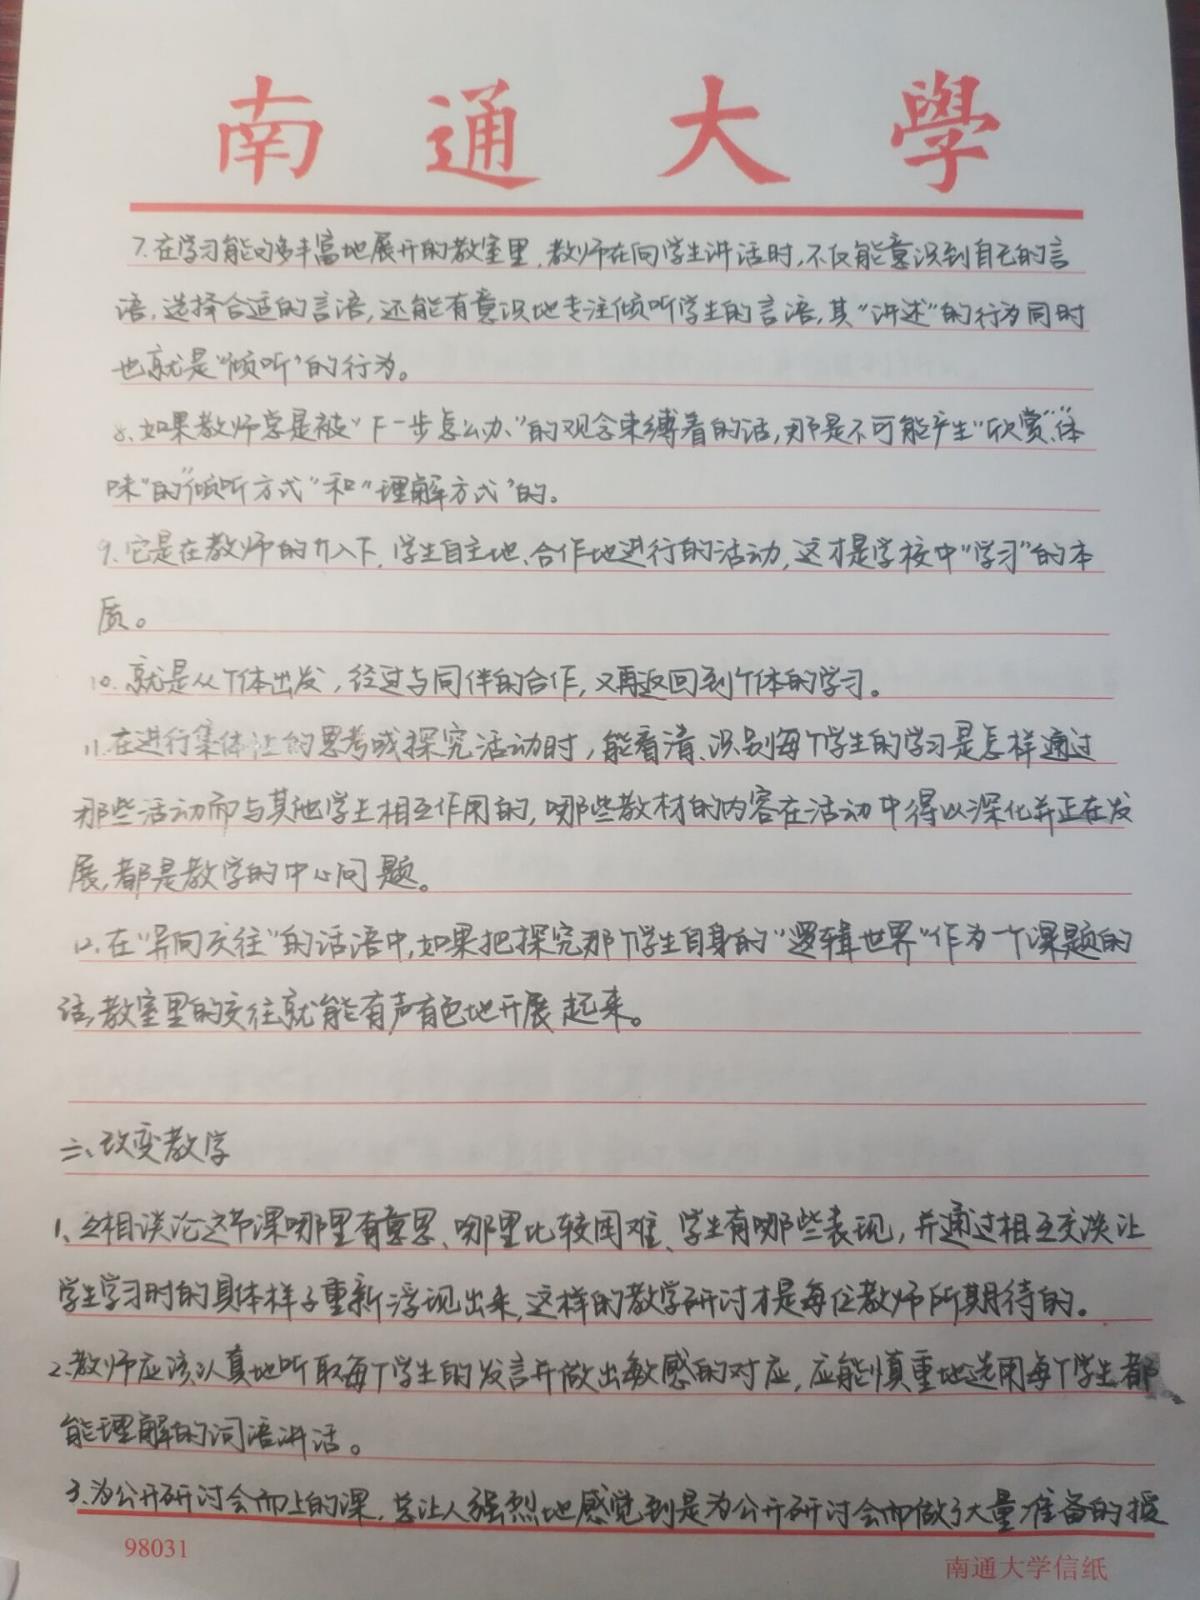 南通大學
7.在学习能够多丰富地展开的教室里,教师在向学生讲话时,不仅能意识到自己的言
语,选择合适的言语,还能有意识地专注倾听学生的言语,其“讲述”的行为同时
也就是“倾听”的行为。
8.如果教师总是被“下一步怎么办”的观念束缚着的话,那是不可能产生“欣赏”、“体
味”的“倾听方式”和“理解方式”的。
9.它是在教师的介入下,学生自主地、合作地进行的活动,这才是学校中“学习”的本
质。
10.就是从个体出发,经过与同伴的合作,又再返回到个体的学习。
11.在进行集体让的思考或探究活动时,能看清、识别每个学生的学习是怎样通过
那些活动而与其他学生相互作用的,哪些教材的内容在活动中得以深化并正在发
展,都是教学的中心问题。
12.在“异向交往”的话语中,如果把探究那个学生自身的“逻辑世界”作为一个课题的
话,教室里的交往就能有声有色地开展起来。
二、改变教学
1、互相谈论这节课哪里有意思、哪里比较困难、学生有哪些表现,并通过相互交谈让
学生学习时的具体样子重新浮现出来,这样的教学研讨才是每位教师所期待的。
2.教师应该认真地听取每个学生的发言并做出敏感的对应,应能慎重地选用每个学生都
能理解的词语讲话。
3.为公开研讨会而上的课,总让人强烈地感觉到是为公开研讨会而做了大量准备的授
98031
南通大学信纸